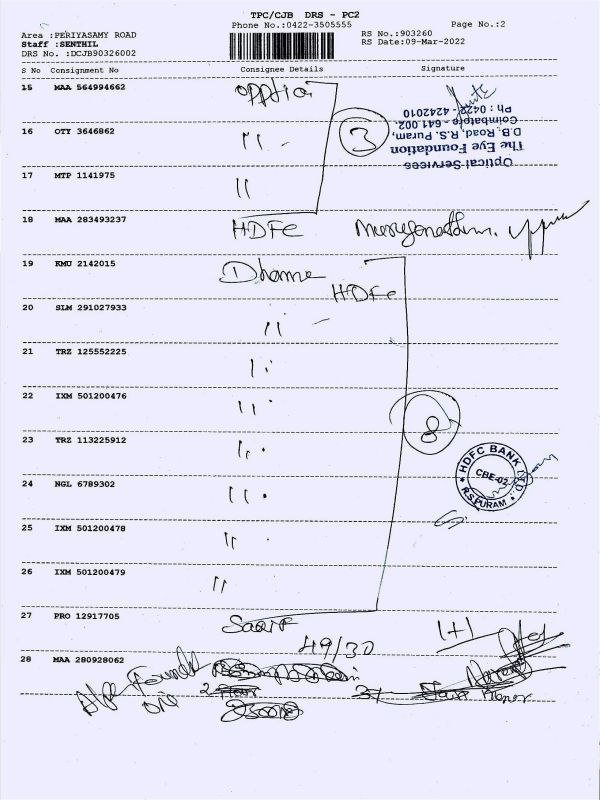 TPC/CJB DRS - PC2
Phone No.:0422-3505555
Page No.:2
Area :PERIYASAMY ROAD
Staff :SENTHIL
DRS No. :DCJB90326002
RS No.:903260
RS Date:09-Mar-2022
S No Consignment No Consignee Details Signature
15 MAA 564994662
Optical Services
The Eye Foundation
D.B. Road, R.S. Puram,
Coimbatore - 641 002.
Ph : 0422 - 4242010
16 OTY 3646862 " 3
17 MTP 1141975 "
18 MAA 283493237 HDFC
19 KMU 2142015
HDFC
20 SLM 291027933 "
21 TRZ 125552225 "
22 IXM 501200476 "
8
23 TRZ 113225912 "
HDFC BANK LTD.
CBE-02
R.S.PURAM
24 NGL 6789302 "
25 IXM 501200478 "
26 IXM 501200479 "
27 PRO 12917705
49/30 1+1
28 MAA 280928062